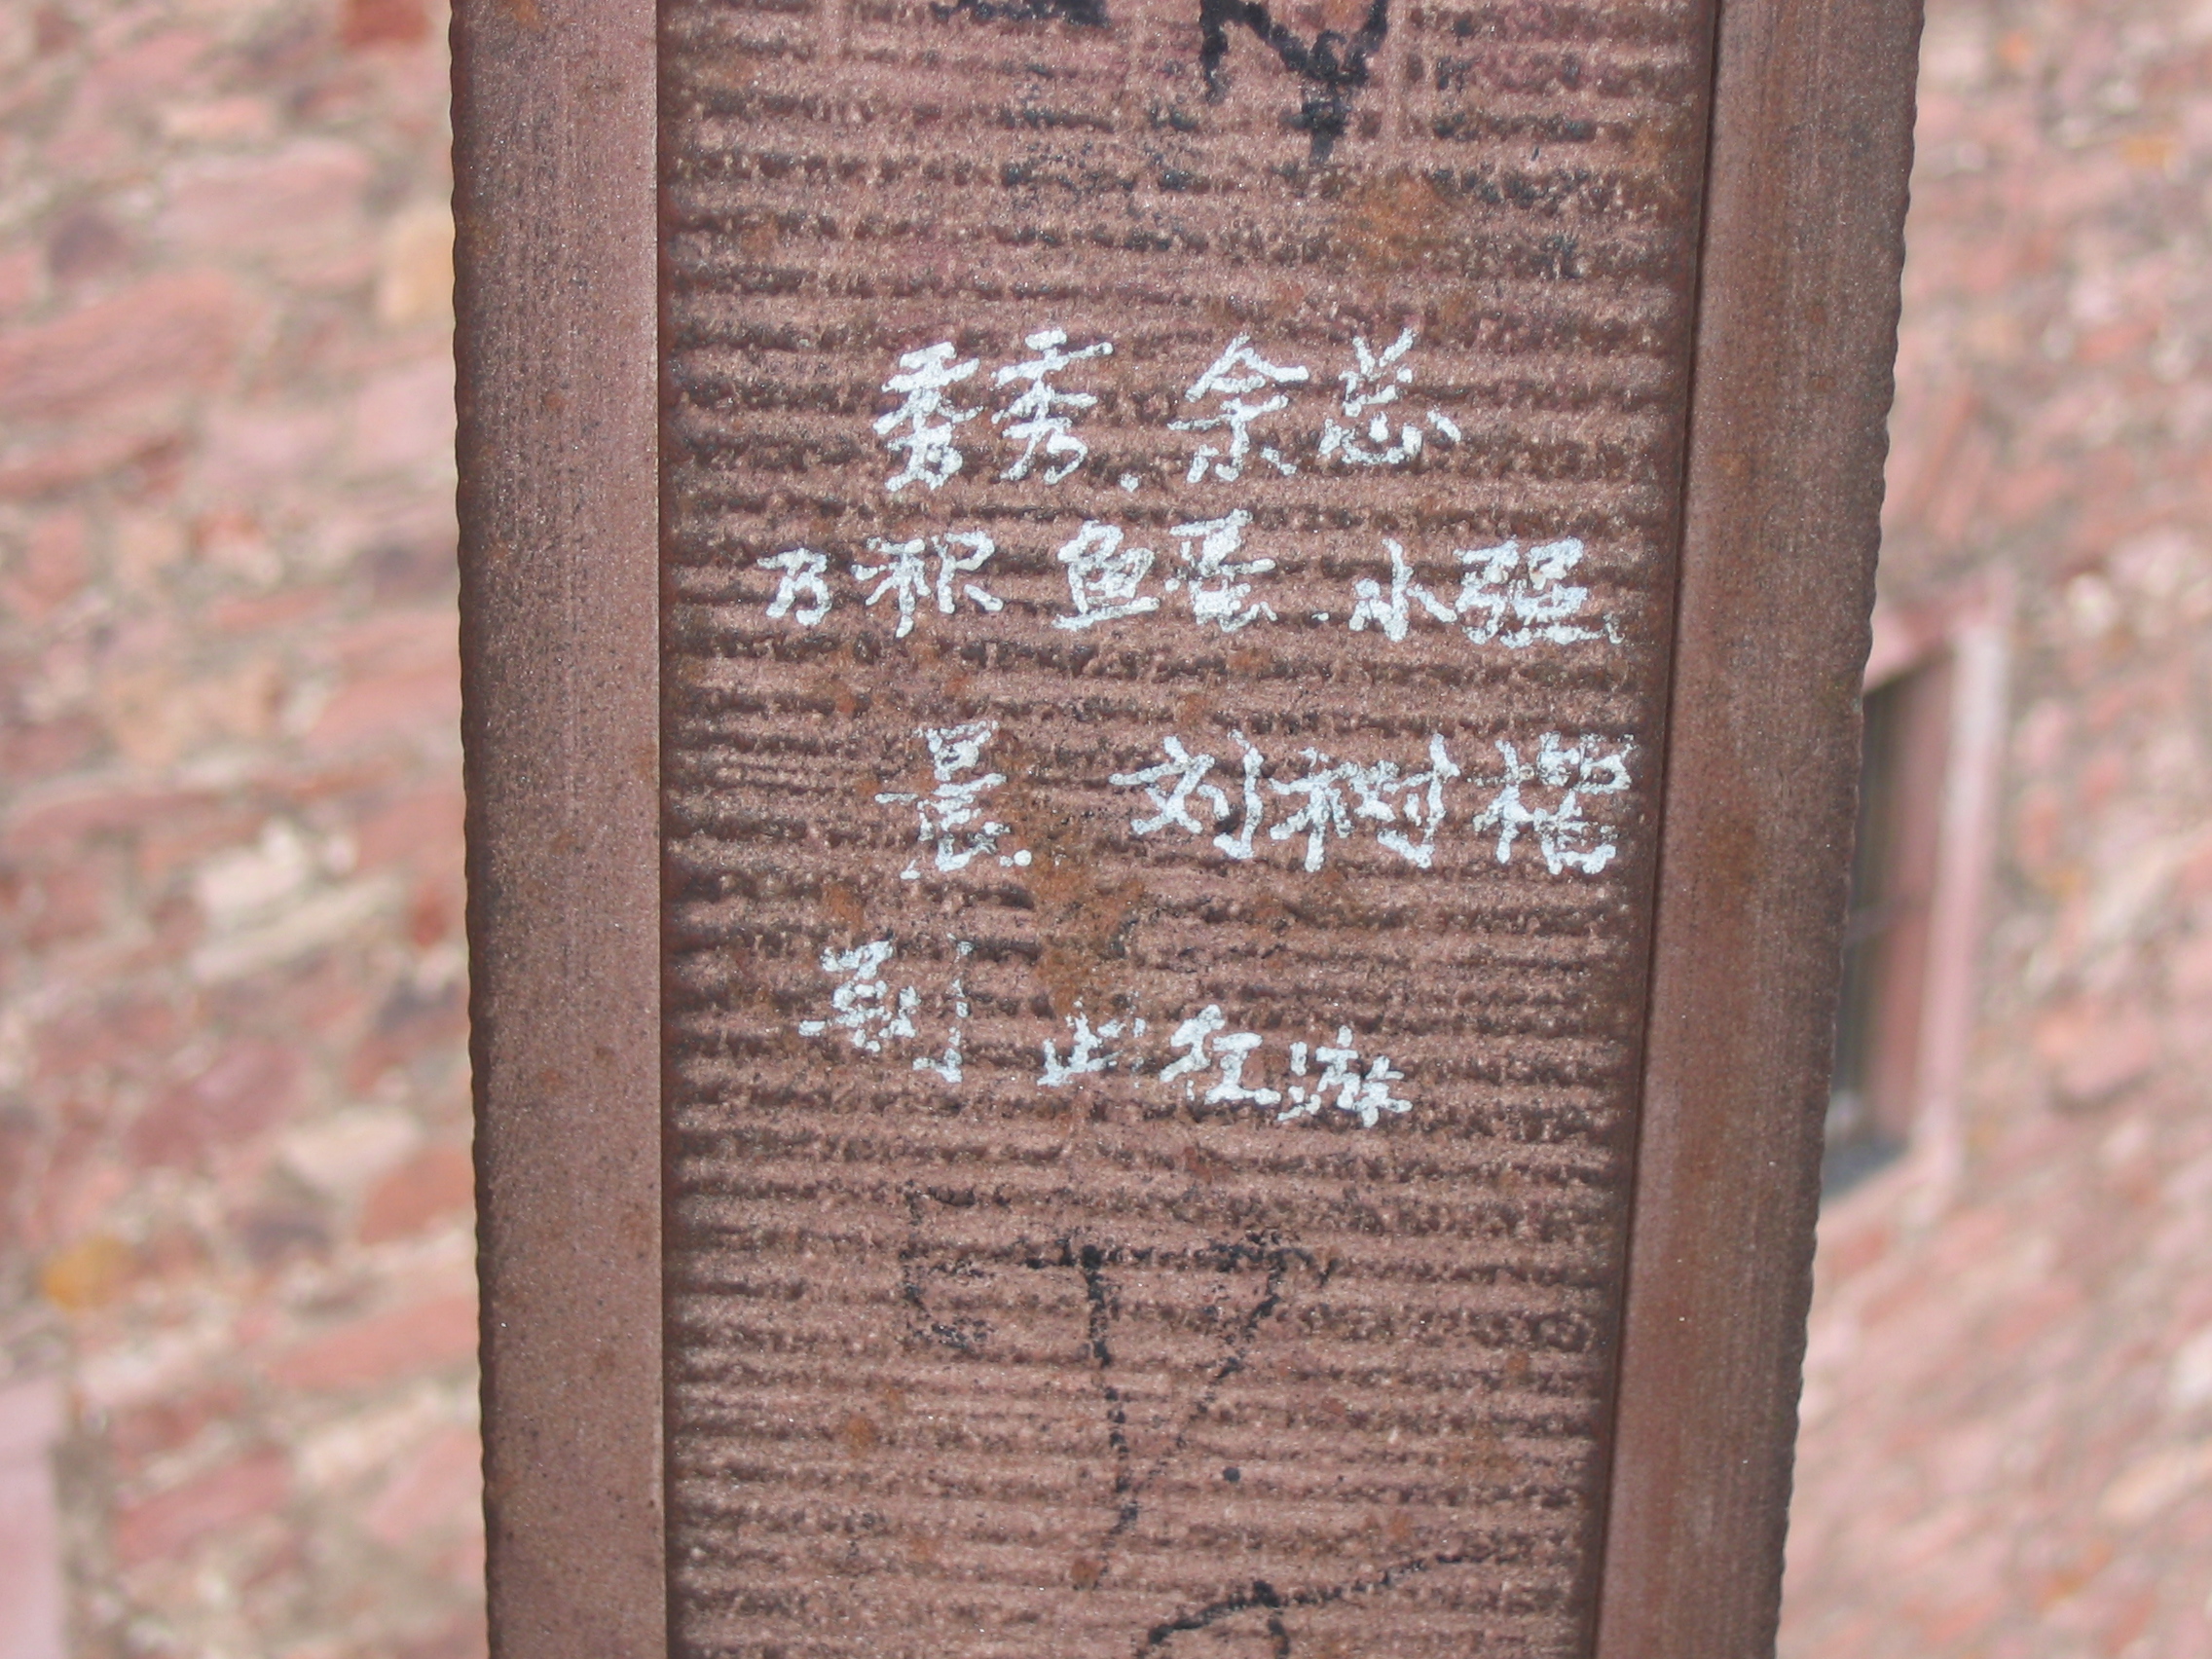 秀秀.余总
万积 鱼蛋.小强
晨. 刘树
到此在游